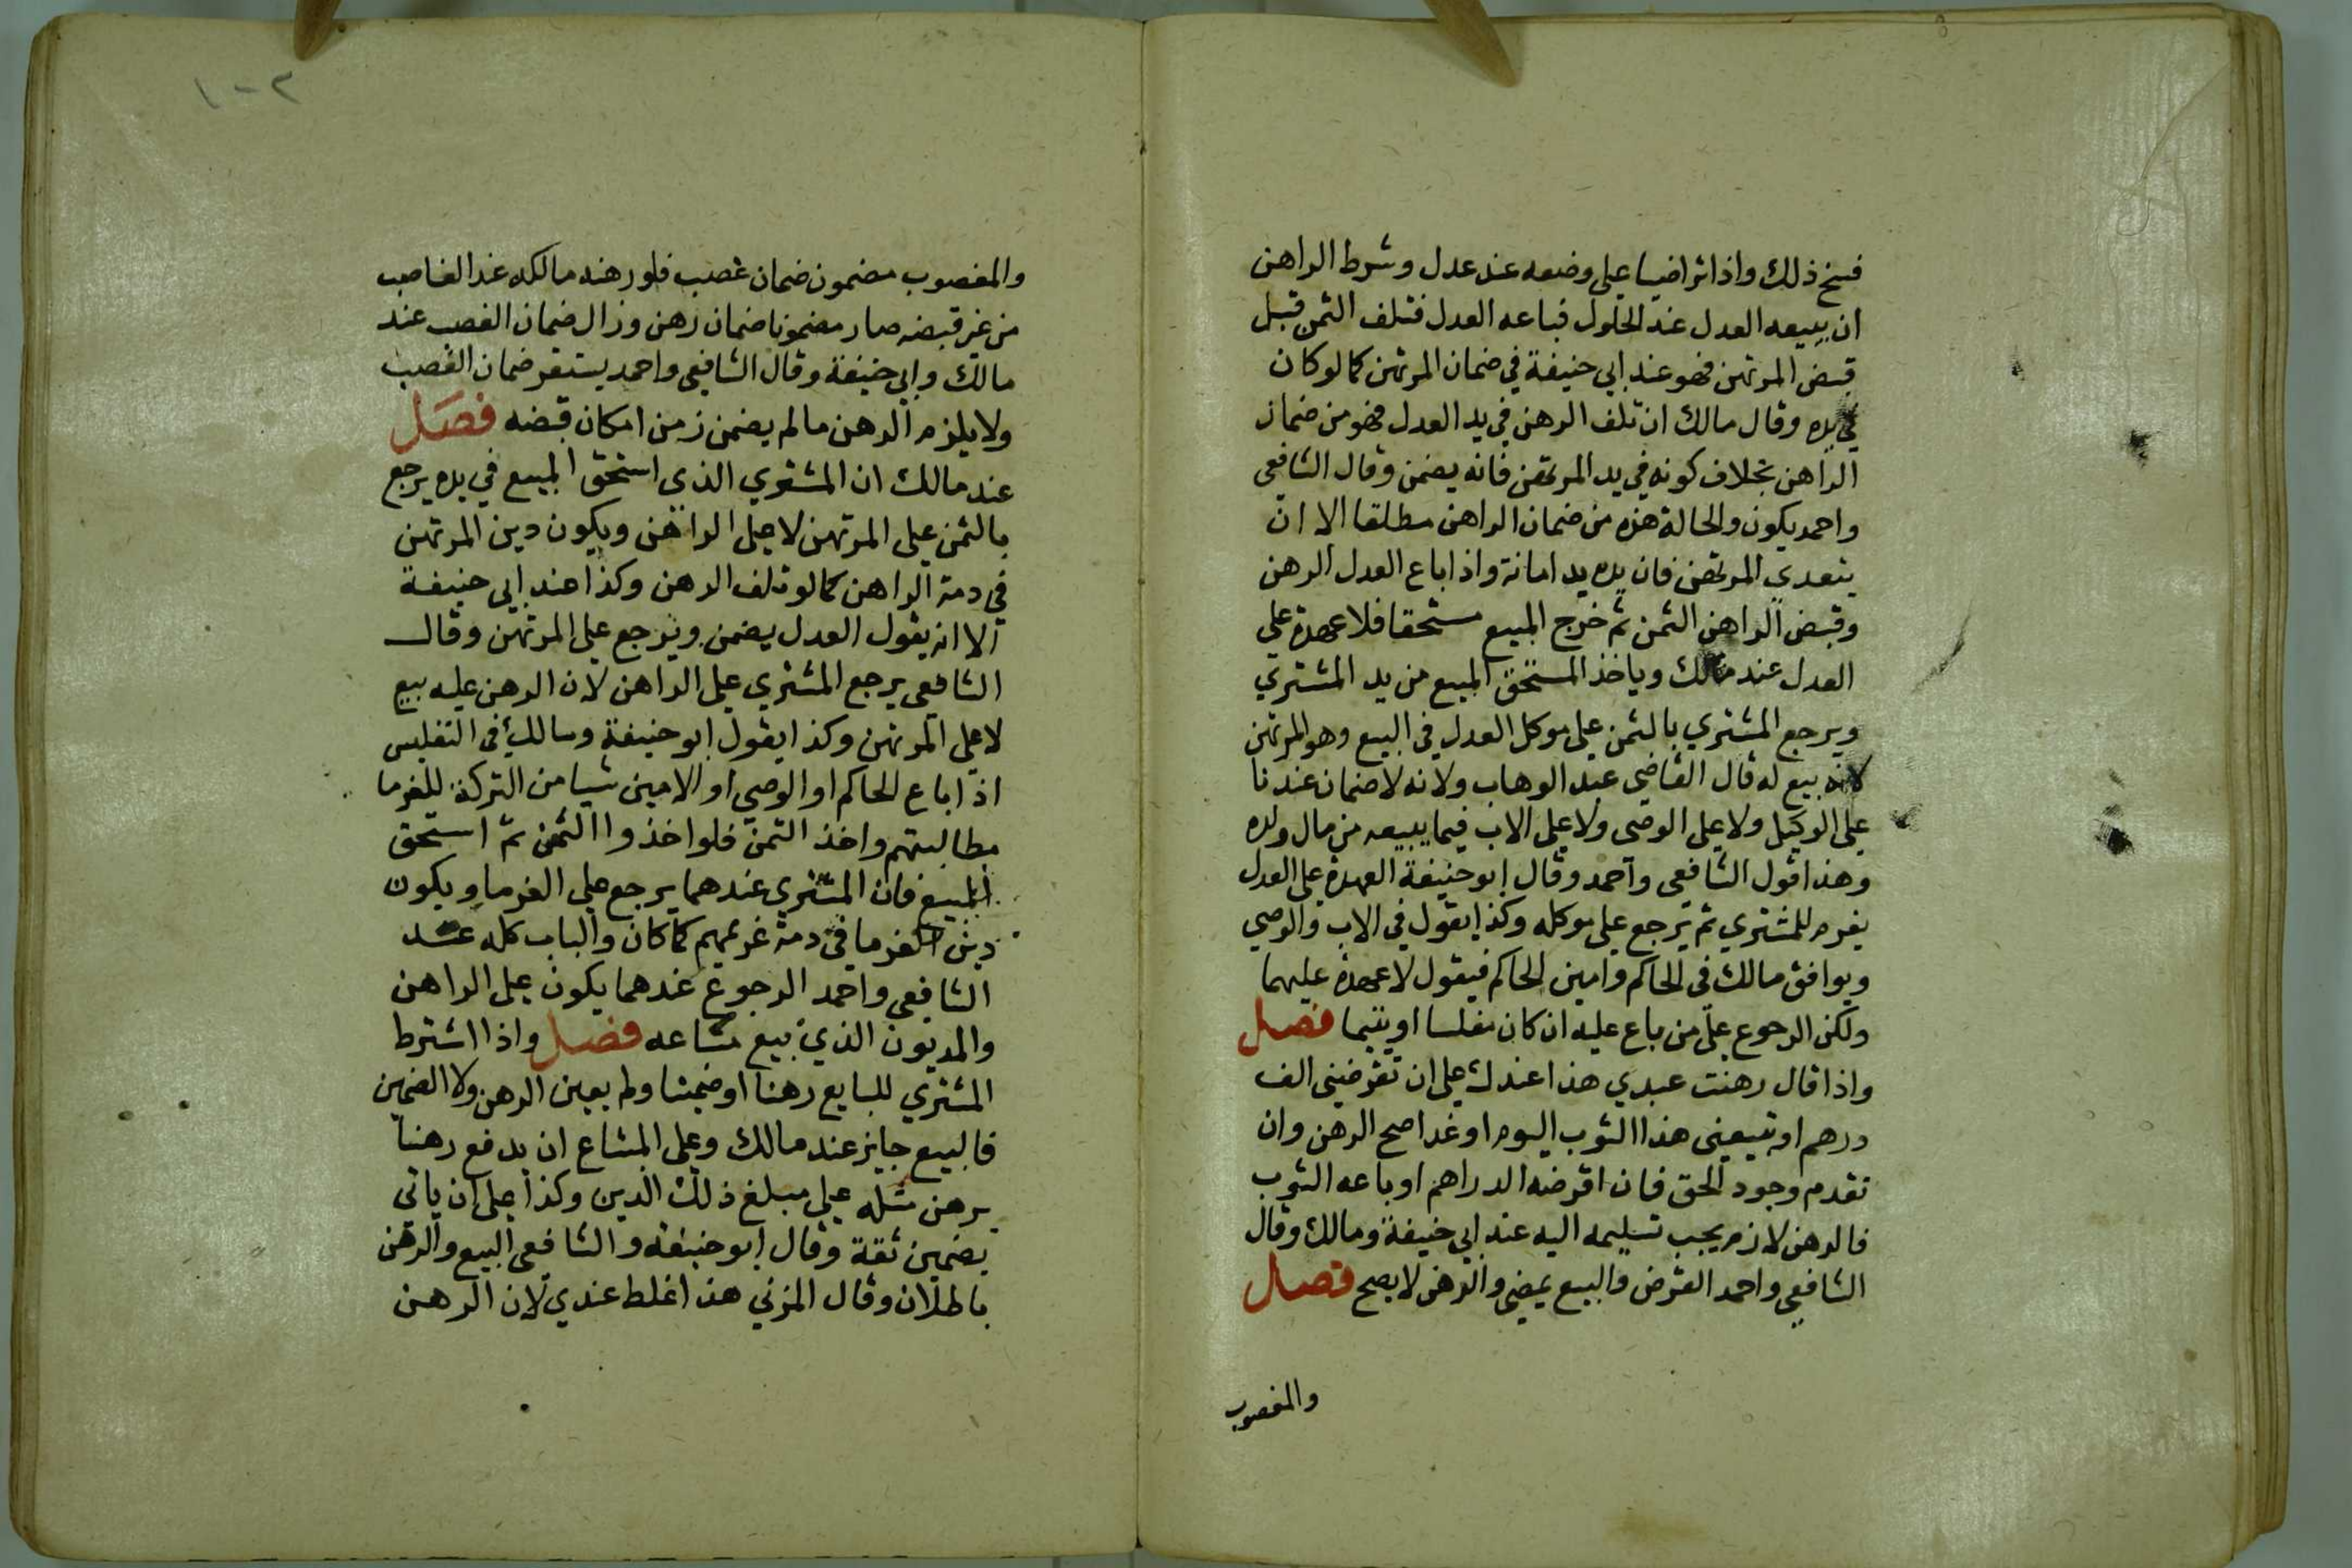 فسخ ذلك واذا تراضيا على وضعه عند عدل وشرط الراهن
ان يبيعه العدل عند الحلول فباعه العدل فتلف الثمن قبل
قبض المرتهن فهو عند ابي حنيفة في ضمان المرتهن كما لو كان
في يده وقال مالك ان تلف الرهن في يد العدل فهو من ضمان
الراهن بخلاف كونه في يد المرتهن فانه يضمن وقال الشافعي
واحمد يكون والحالة هذه من ضمان الراهن مطلقا الا ان
يتعدي المرتهن فان يده يد امانة واذا باع العدل الرهن
وقبض الراهن الثمن ثم خرج المبيع مستحقا فلا عهدة علي
العدل عند مالك وياخذ المستحق المبيع من يد المشتري
ويرجع المشتري بالثمن على موكل العدل في البيع وهو المرتهن
لانه بيع له قال القاضي عبد الوهاب ولانه لا ضمان عندنا
على الوكيل ولا على الوصى ولا على الاب فيما يبيعه من مال ولده
وهذا قول الشافعي واحمد وقال ابو حنيفة العهدة على العدل
يغرم للمشتري ثم يرجع على موكله وكذا يقول في الاب والوصي
ويوافق مالك في الحاكم وامين الحاكم فيقول لا عهدة عليهما
ولكن الرجوع على من باع عليه ان كان مفلسا او يتيما فصل
واذا قال رهنت عبدي هذا عندك على ان تقرضنى الف
درهم او تبيعنى هذا الثوب اليوم او غدا صح الرهن وان
تقدم وجود الحق فان اقرضه الدراهم او باعه الثوب
فالرهن لازم يجب تسليمه اليه عند ابي حنيفة ومالك وقال
الشافعي واحمد القرض والبيع يمضي والرهن لا يصح فصل
والمغصوب
١٠٢
والمغصوب مضمون ضمان غصب فلو رهنه مالكه عند الغاصب
من غير قبضه صار مضمونا ضمان رهن وزال ضمان الغصب عند
مالك وابي حنيفة وقال الشافعي واحمد يستقر ضمان الغصب
ولا يلزم الرهن ما لم يضمن زمن امكان قبضه فصل
عند مالك ان المشتري الذى استحق المبيع في يده يرجع
بالثمن على المرتهن لاجل الراهن ويكون دين المرتهن
في دمة الراهن كما لو تلف الرهن وكذا عند ابي حنيفة
الا انه يقول العدل يضمن ويرجع على المرتهن وقال
الشافعي يرجع المشتري على الراهن لان الرهن عليه بيع
لا على المرتهن وكذا يقول ابو حنيفة ومالك في التفليس
اذا باع الحاكم او الوصي او الامين شيا من التركة للغرما
مطالبتهم واخذ الثمن فلو اخذوا الثمن ثم استحق
المبيع فان المشتري عندهما يرجع على الغرما ويكون
دين الغرما في دمة غريمهم كما كان والباب كله عند
الشافعي واحمد الرجوع عندهما يكون على الراهن
والمديون الذي بيع متاعه فصل واذا اشترط
المشتري للبايع رهنا او ضمينا ولم يعين الرهن ولا الضمين
فالبيع جايز عند مالك وعلى المبتاع ان يدفع رهنا
يرهن مثله على مبلغ ذلك الدين وكذا على ان ياتى
بضمين ثقة وقال ابو حنيفة والشافعي البيع والرهن
باطلان وقال المزني هذا غلط عندي لان الرهن